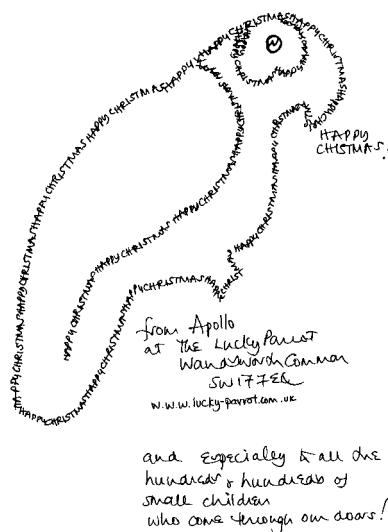 HAPPY CHRISTMAS HAPPY CHRISTMAS HAPPY CHRISTMAS HAPPY CHRISTMAS
HAPPY
CHISTMAS!
from Apollo
at The Lucky Parrot
Wandsworth Common
SW17 7EG
w.w.w.lucky-parrot.com.uk
and especially to all the
hundreds & hundreds of
small children
who come through our doors!